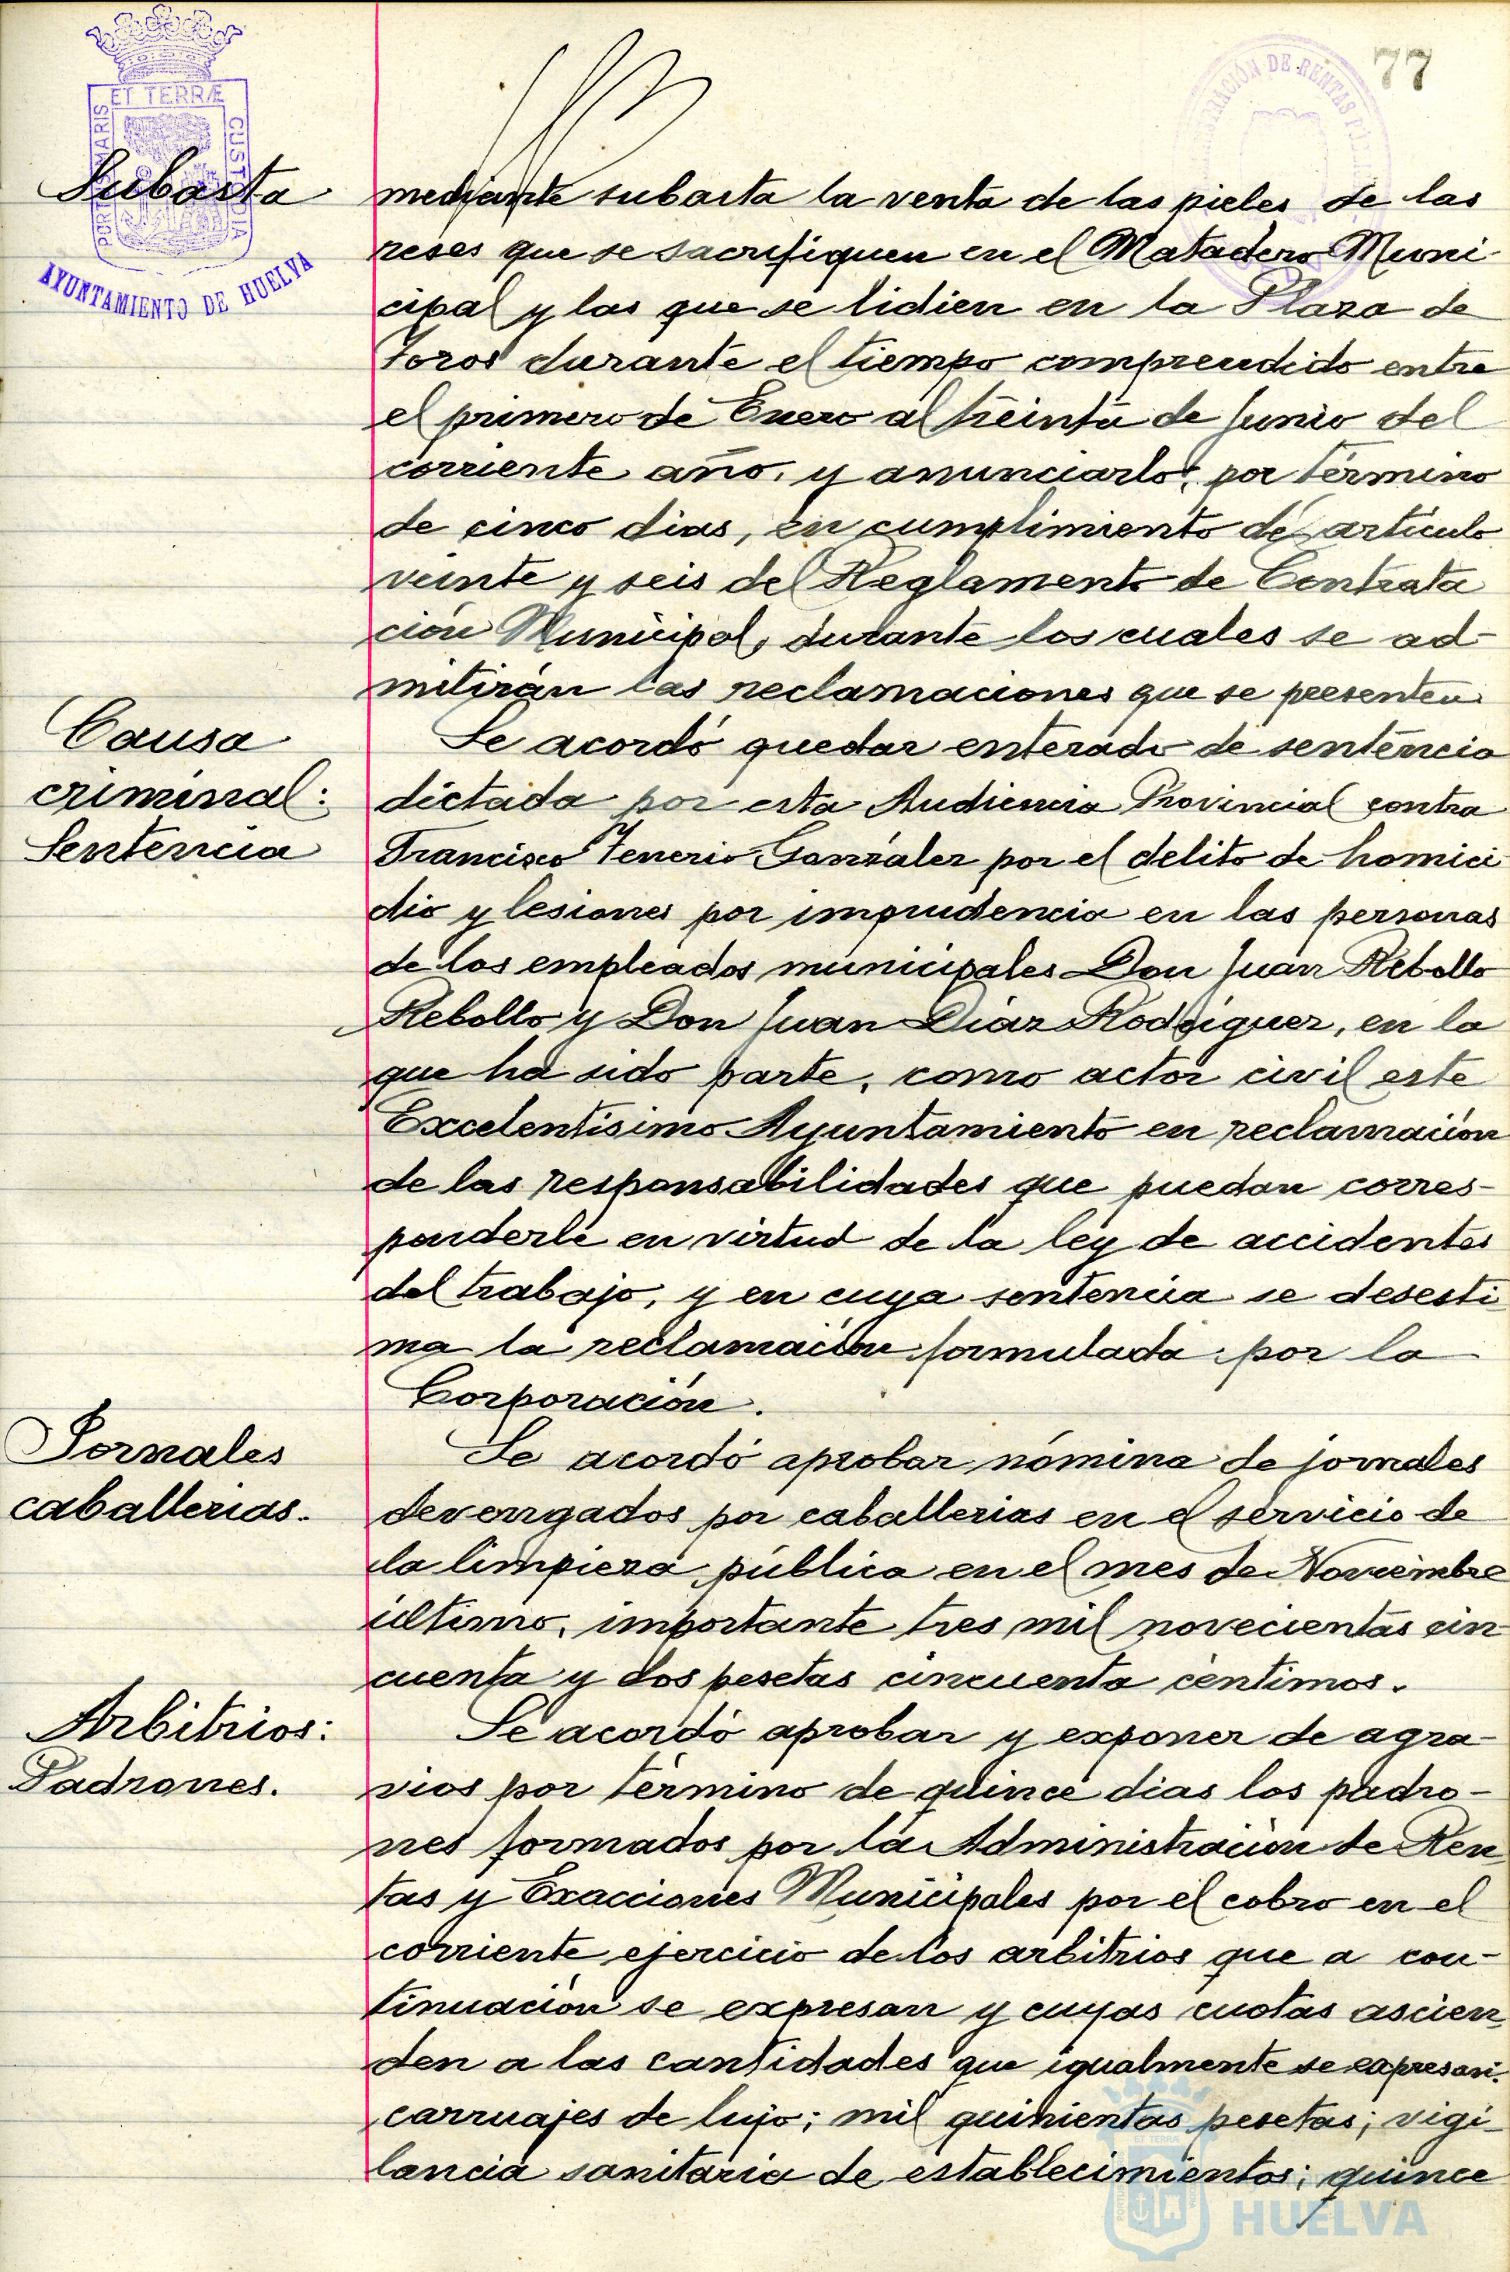 77
PORTUS MARIS ET TERRÆ CUSTODIA
AYUNTAMIENTO DE HUELVA
Subasta
mediante subasta la venta de las pieles de las
reses que se sacrifiquen en el Matadero Muni-
cipal y las que se lidien en la Plaza de
Toros durante el tiempo comprendido entre
el primero de Enero al treinta de Junio del
corriente año, y anunciarlo, por término
de cinco dias, en cumplimiento del artículo
veinte y seis del Reglamento de Contrata
ción Municipal, durante los cuales se ad-
mitirán las reclamaciones que se presenten.
Causa
criminal:
Sentencia
Se acordó quedar enterado de sentencia
dictada por esta Audiencia Provincial contra
Francisco Tenerio González por el delito de homici
dio y lesiones por imprudencia en las personas
de los empleados municipales Don Juan Rebollo
Rebollo y Don Juan Diaz Rodriguez, en la
que ha sido parte, como actor civil este
Excelentísimo Ayuntamiento en reclamación
de las responsabilidades que puedan corres-
ponderle en virtud de la ley de accidentes
del trabajo, y en cuya sentencia se desesti
ma la reclamación formulada por la
Corporación.
Jornales
caballerias.
Se acordó aprobar nómina de jornales
devengados por caballerias en el servicio de
la limpieza pública en el mes de Noviembre
último, importante tres mil novecientas cin-
cuenta y dos pesetas cincuenta céntimos.
Arbitrios:
Padrones.
Se acordó aprobar y exponer de agra-
vios por término de quince dias los padro-
nes formados por la Administración de Ren
tas y Exacciones Municipales por el cobro en el
corriente ejercicio de los arbitrios que a con-
tinuación se expresan y cuyas cuotas ascien
den a las cantidades que igualmente se expresan:
carruajes de lujo; mil quinientas pesetas; vigi-
lancia sanitaria de establecimientos; quince
HUELVA